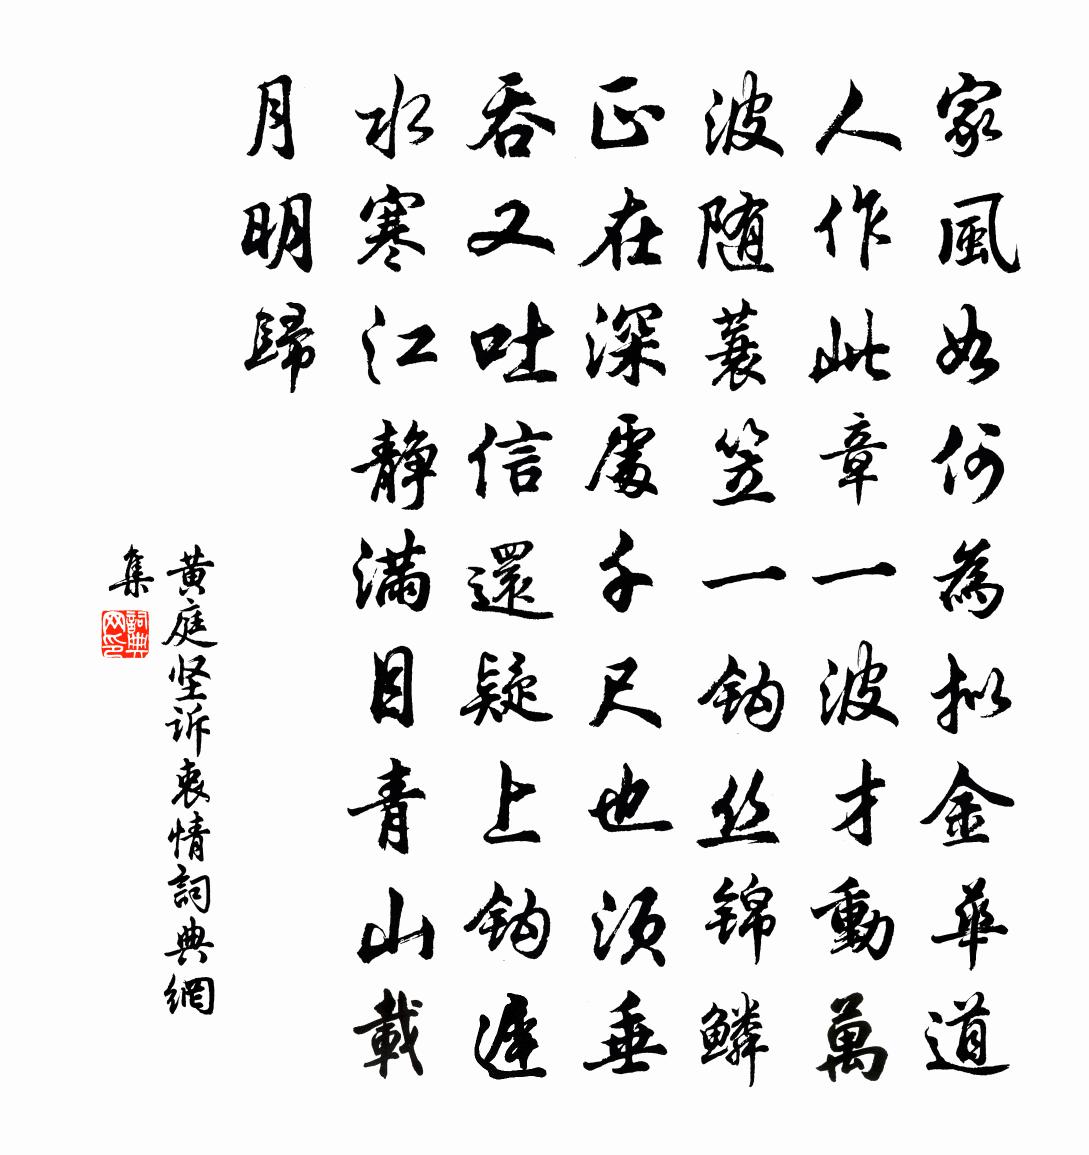 家風如何為拟金華道
人作此章一波才動萬
波随蓑笠一钩丝锦鳞
正在深處千尺也须垂
吞又吐信還疑上钩遲
水寒江静满目青山載
月明歸
黄庭坚诉衷情詞典網
集
詞典网印